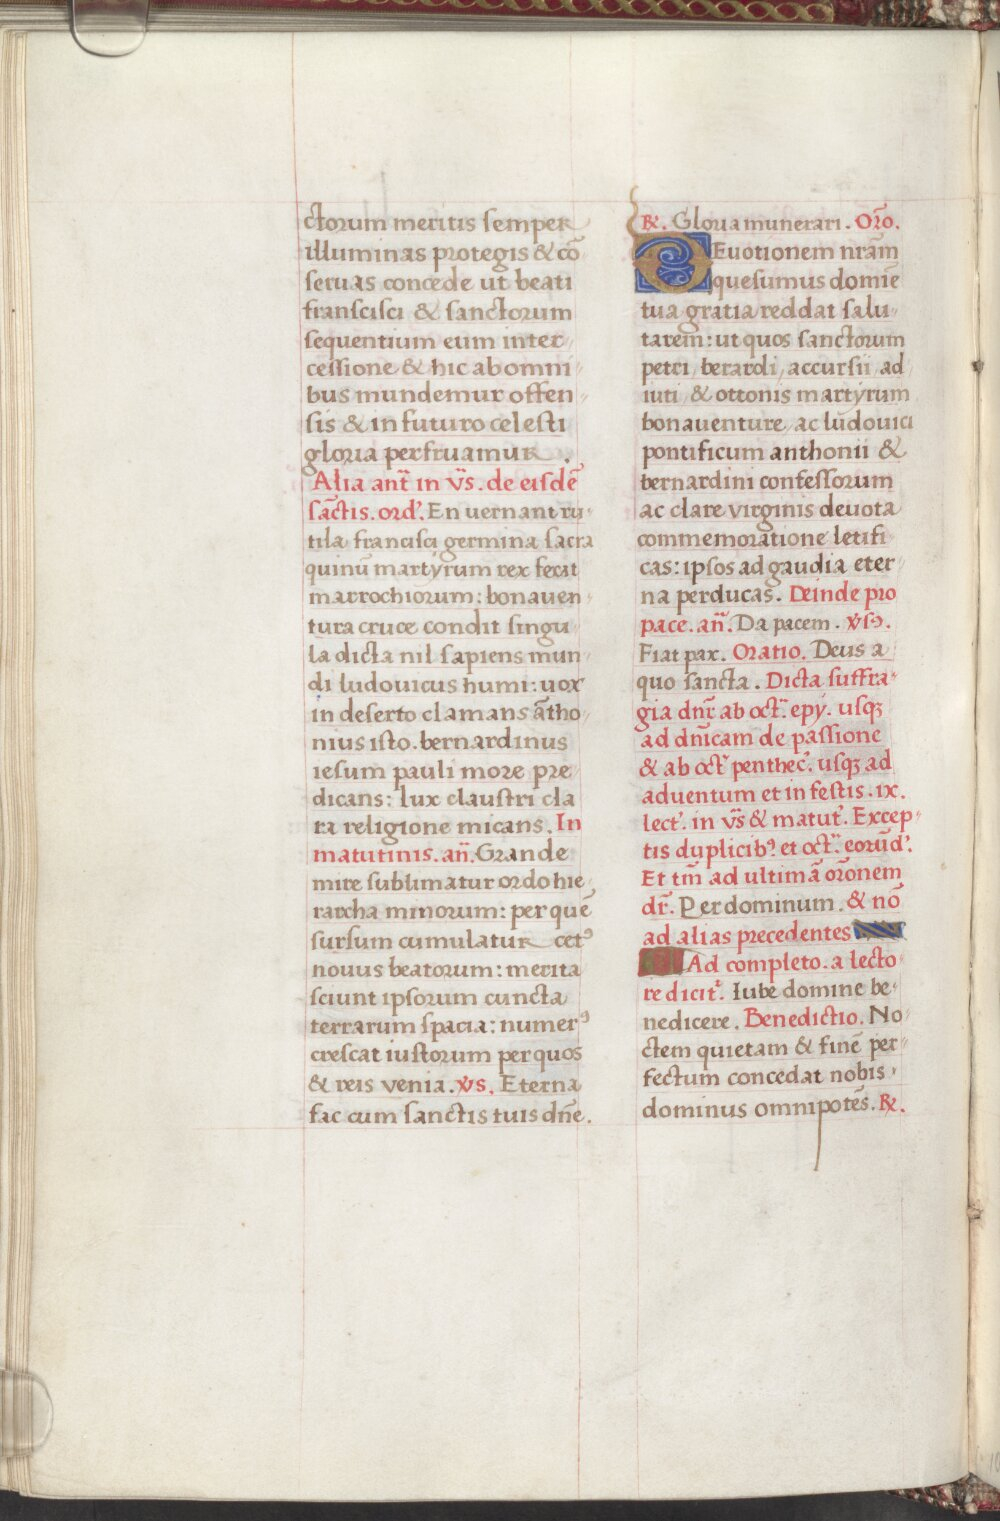 ctorum meritis semper
illuminas protegis & cō
seruas concede ut beati
franscisci & sanctorum
sequentium eum inter
cessione & hic ab omni
bus mundemur offen
sis & in futuro celesti
gloria perfruamur .
Alia ant̄ in v̄s. de eisdē
sāctis. ord’. En uernant ru
tila francisci germina sacra
quinū martyrum rex fecit
marrochiorum: bonauen
tura cruce condit singu
la dicta nil sapiens mun
di ludouicus humi: uox
in deserto clamans ātho
nius isto. bernardinus
iesum pauli more pre
dicans: lux claustri cla
ra religione micans. In
matutinis. an̄. Grande
mire sublimatur ordo hie
rarcha minorum: per quē
sursum cumulatur cetꝰ
nouus beatorum: merita
sciunt ipsorum cuncta
terrarum spacia: numerꝰ
crescat iustorum per quos
& reis venia. v̓s. Eterna
fac cum sanctis tuis dn̄e.
℞. Gloria munerari. Or̄o.
Deuotionem nrām
quesumus domīe
tua gratia reddat salu
tarem: ut quos sanctorum
petri, berardi, accursii, ad
iuti, & ottonis martyrum
bonauenture, ac ludouici
pontificum anthonii &
bernardini confessorum
ac clare virginis deuota
commemoratione letifi
cas: ipsos ad gaudia eter
na perducas. Deinde pro
pace. an̄. Da pacem. v̓sꝰ.
Fiat pax. Oratio. Deus a
quo sancta. Dicta suffra
gia dn̄r ab oct̄. epy. usqꝫ
ad dn̄icam de passione
& ab oct̄ penthec’. usqꝫ ad
aduentum et in festis. ix.
lect’. in v̄s & matut’. Excep
tis duplicibꝰ et oct̄. eorūd’.
Et tm̄ ad ultimā orōnem
dr̄. Per dominum. & nō
ad alias precedentes
Ad completo. a lecto
re dicit’. Iube domine be
nedicere. Benedictio. No
ctem quietam & finē per
fectum concedat nobis
dominus omnipotēs. ℞.